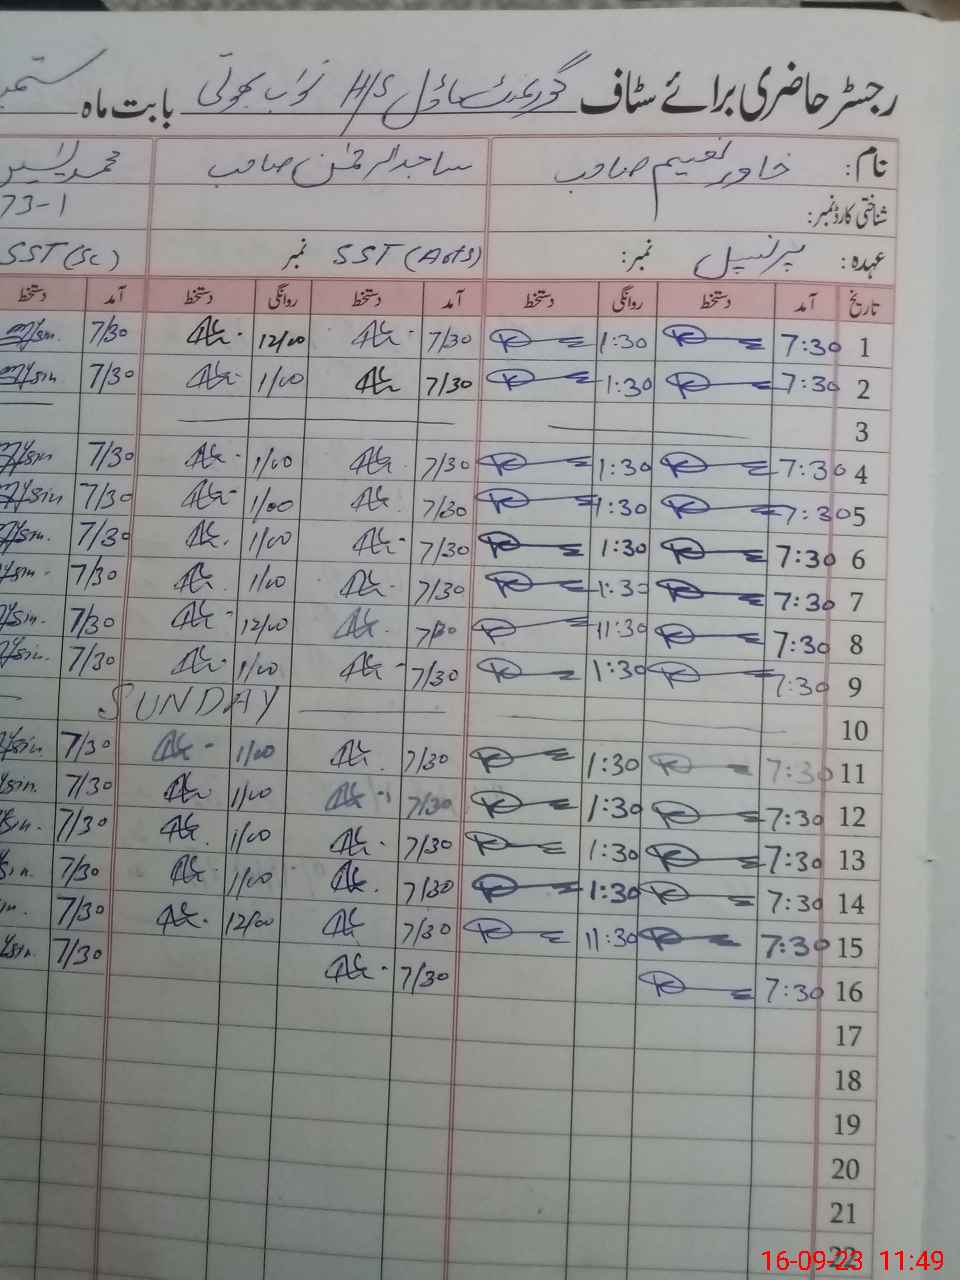 رجسٹر حاضری برائے سٹاف گورنمنٹ ماڈل H/S نواب بھوتی بابت ماہ ستمبر
نام: خاور نعیم صاحب ساجد الرحمٰن صاحب محمد یٰسین
شناختی کارڈ نمبر: 73-1
عہدہ: پرنسپل نمبر: SST (Arts) نمبر SST (Sc)
تاریخ آمد دستخط روانگی دستخط آمد دستخط روانگی دستخط آمد دستخط
1 7:30 1:30 7/30 12/00 7/30
2 7:30 1:30 7/30 1/00 7/30
3
4 7:30 1:30 7/30 1/00 7/30
5 7:30 1:30 7/30 1/00 7/30
6 7:30 1:30 7/30 1/00 7/30
7 7:30 1:30 7/30 1/00 7/30
8 7:30 11:30 7/30 12/00 7/30
9 7:30 1:30 7/30 1/00 7/30
10 SUNDAY
11 7:30 1:30 7/30 1/00 7/30
12 7:30 1:30 7/30 1/00 7/30
13 7:30 1:30 7/30 1/00 7/30
14 7:30 1:30 7/30 1/00 7/30
15 7:30 11:30 7/30 12/00 7/30
16 7:30 7/30 7/30
17
18
19
20
21
22
16-09-23 11:49